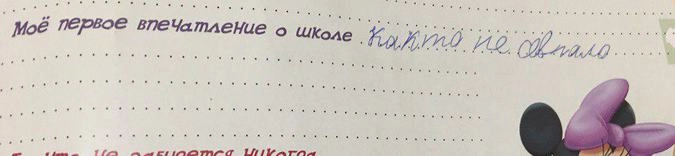 Моё первое впечатление о школе Какта не
что не забудется никогда